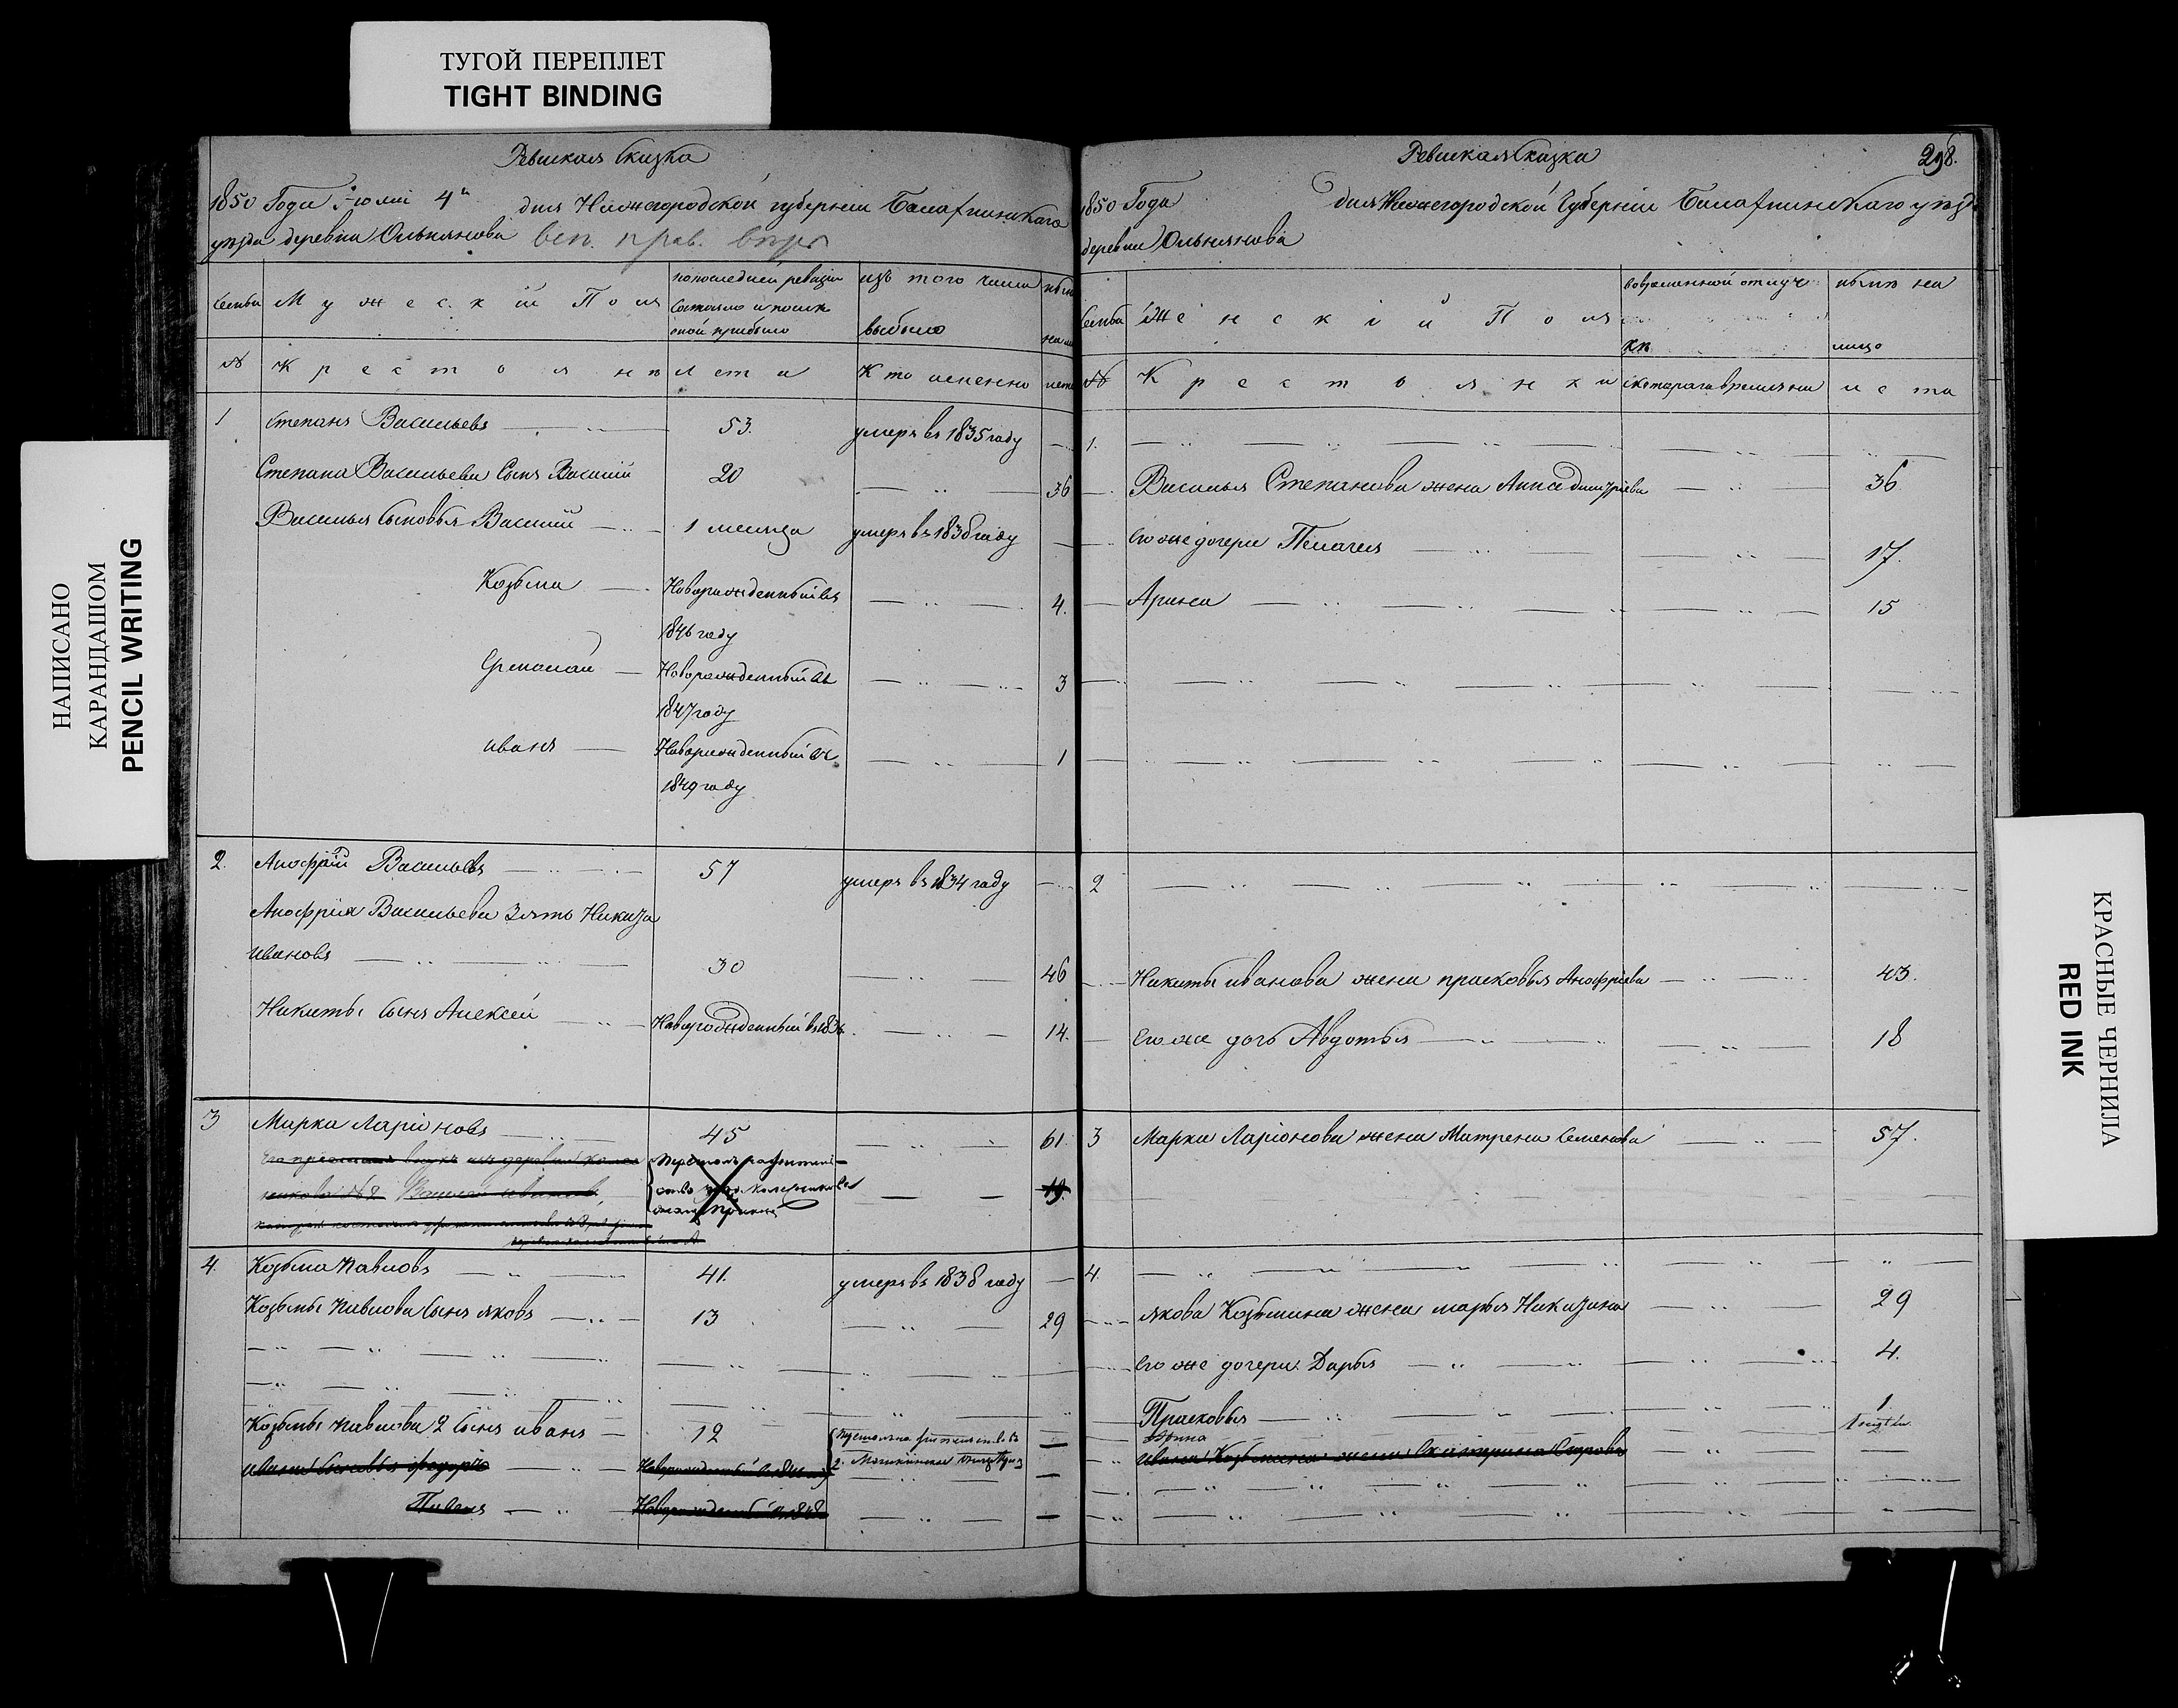 ТУГОЙ ПЕРЕПЛЕТ
TIGHT BINDING
НАПИСАНО
КАРАНДАШОМ
PENCIL WRITING
КРАСНЫЕ ЧЕРНИЛА
RED INK
Ревиская Сказка
1850 Года Іюля 4го дня Нижегородской губерніи Балахнинскаго
уѣзда деревни
Семьи Мужескій Полъ
по последней ревизіи
состояло и после
оной прибыло
изъ того числа
выбыло
№ Крестьяне Лета Кто именно лета
1 Степанъ Васильевъ 53. умеръ въ 1835 году
Степана Васильева Сынъ Василий 20 36
Василья Сыновья Василий 1 месяца умеръ въ 1838 году
Козьма Новорожденный въ 4.
1846 году
Ермолай Новорожденный въ 3
1847 году
иванъ Новорожденный въ 1
1849 году
2. Анофрій Васильевъ 57 умеръ въ 1834 году
Анофрия Васильева Зять Никита
ивановъ 30 46
Никиты Сынъ Алексей Новорожденный въ 1836 14.
3 Марка Ларіоновъ 45 61.
19.
4. Козьма Павловъ 41. умеръ въ 1838 году
Козьмы Павлова Сынъ яковъ 13 29
Козьмы Павлова 2 Сынъ иванъ 12
ивана Сыновья федоръ
Павелъ
Ревиская Сказка 298.
1850 Года дня Нижегородской Губерніи Балахнинскаго уѣзда
деревни
Семьи Женскій Полъ
во временной отлучке
ныне на
лицо
№ Крестьянки с котораго времяни лета
1.
Василья Степанова жена Анна дмитріева 36
Его же дочери Пелагея 17.
Арина 15
2
Никиты иванова жена прасковья Анофріева 43.
Его же дочь Авдотья 18
3 Марки Ларіонова жена Матрена Семенова 57.
4.
якова Козьмина жена марья Никитина 29
Его же дочери Дарья 4.
Прасковья 1
Анна
ивана Козьмина жена Екатерина